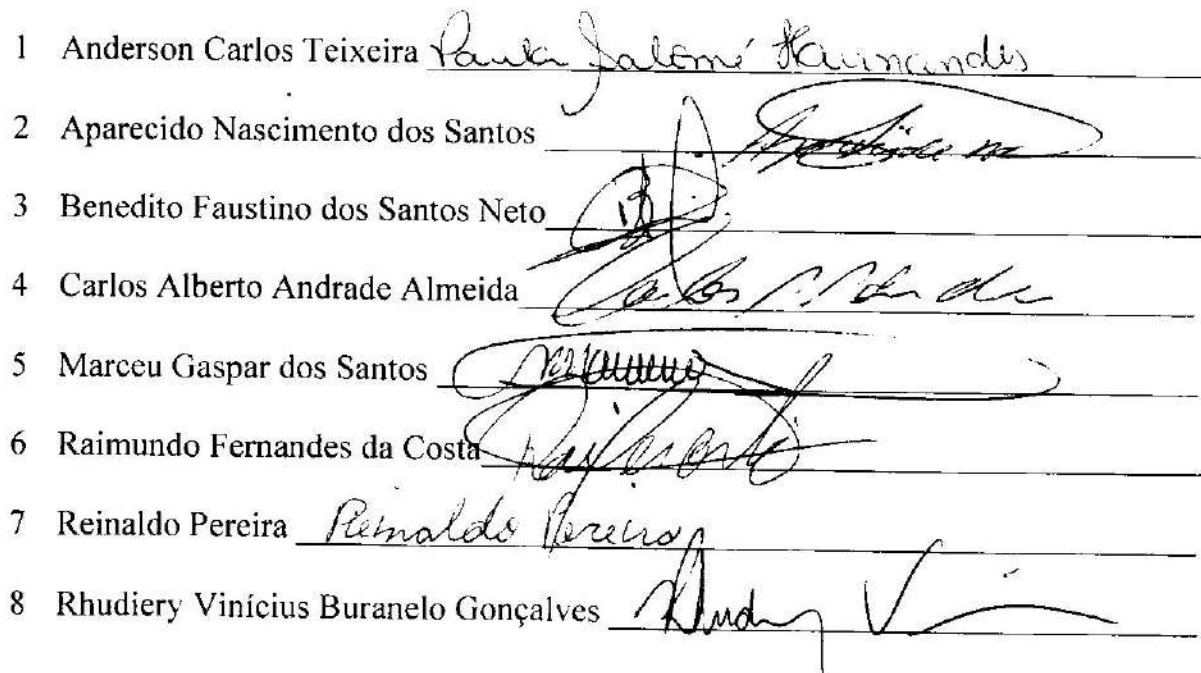 1 Anderson Carlos Teixeira Paula Salomé Hernandes
2 Aparecido Nascimento dos Santos
3 Benedito Faustino dos Santos Neto
4 Carlos Alberto Andrade Almeida Carlos
5 Marceu Gaspar dos Santos
6 Raimundo Fernandes da Costa
7 Reinaldo Pereira Reinaldo Pereira
8 Rhudiery Vinícius Buranelo Gonçalves